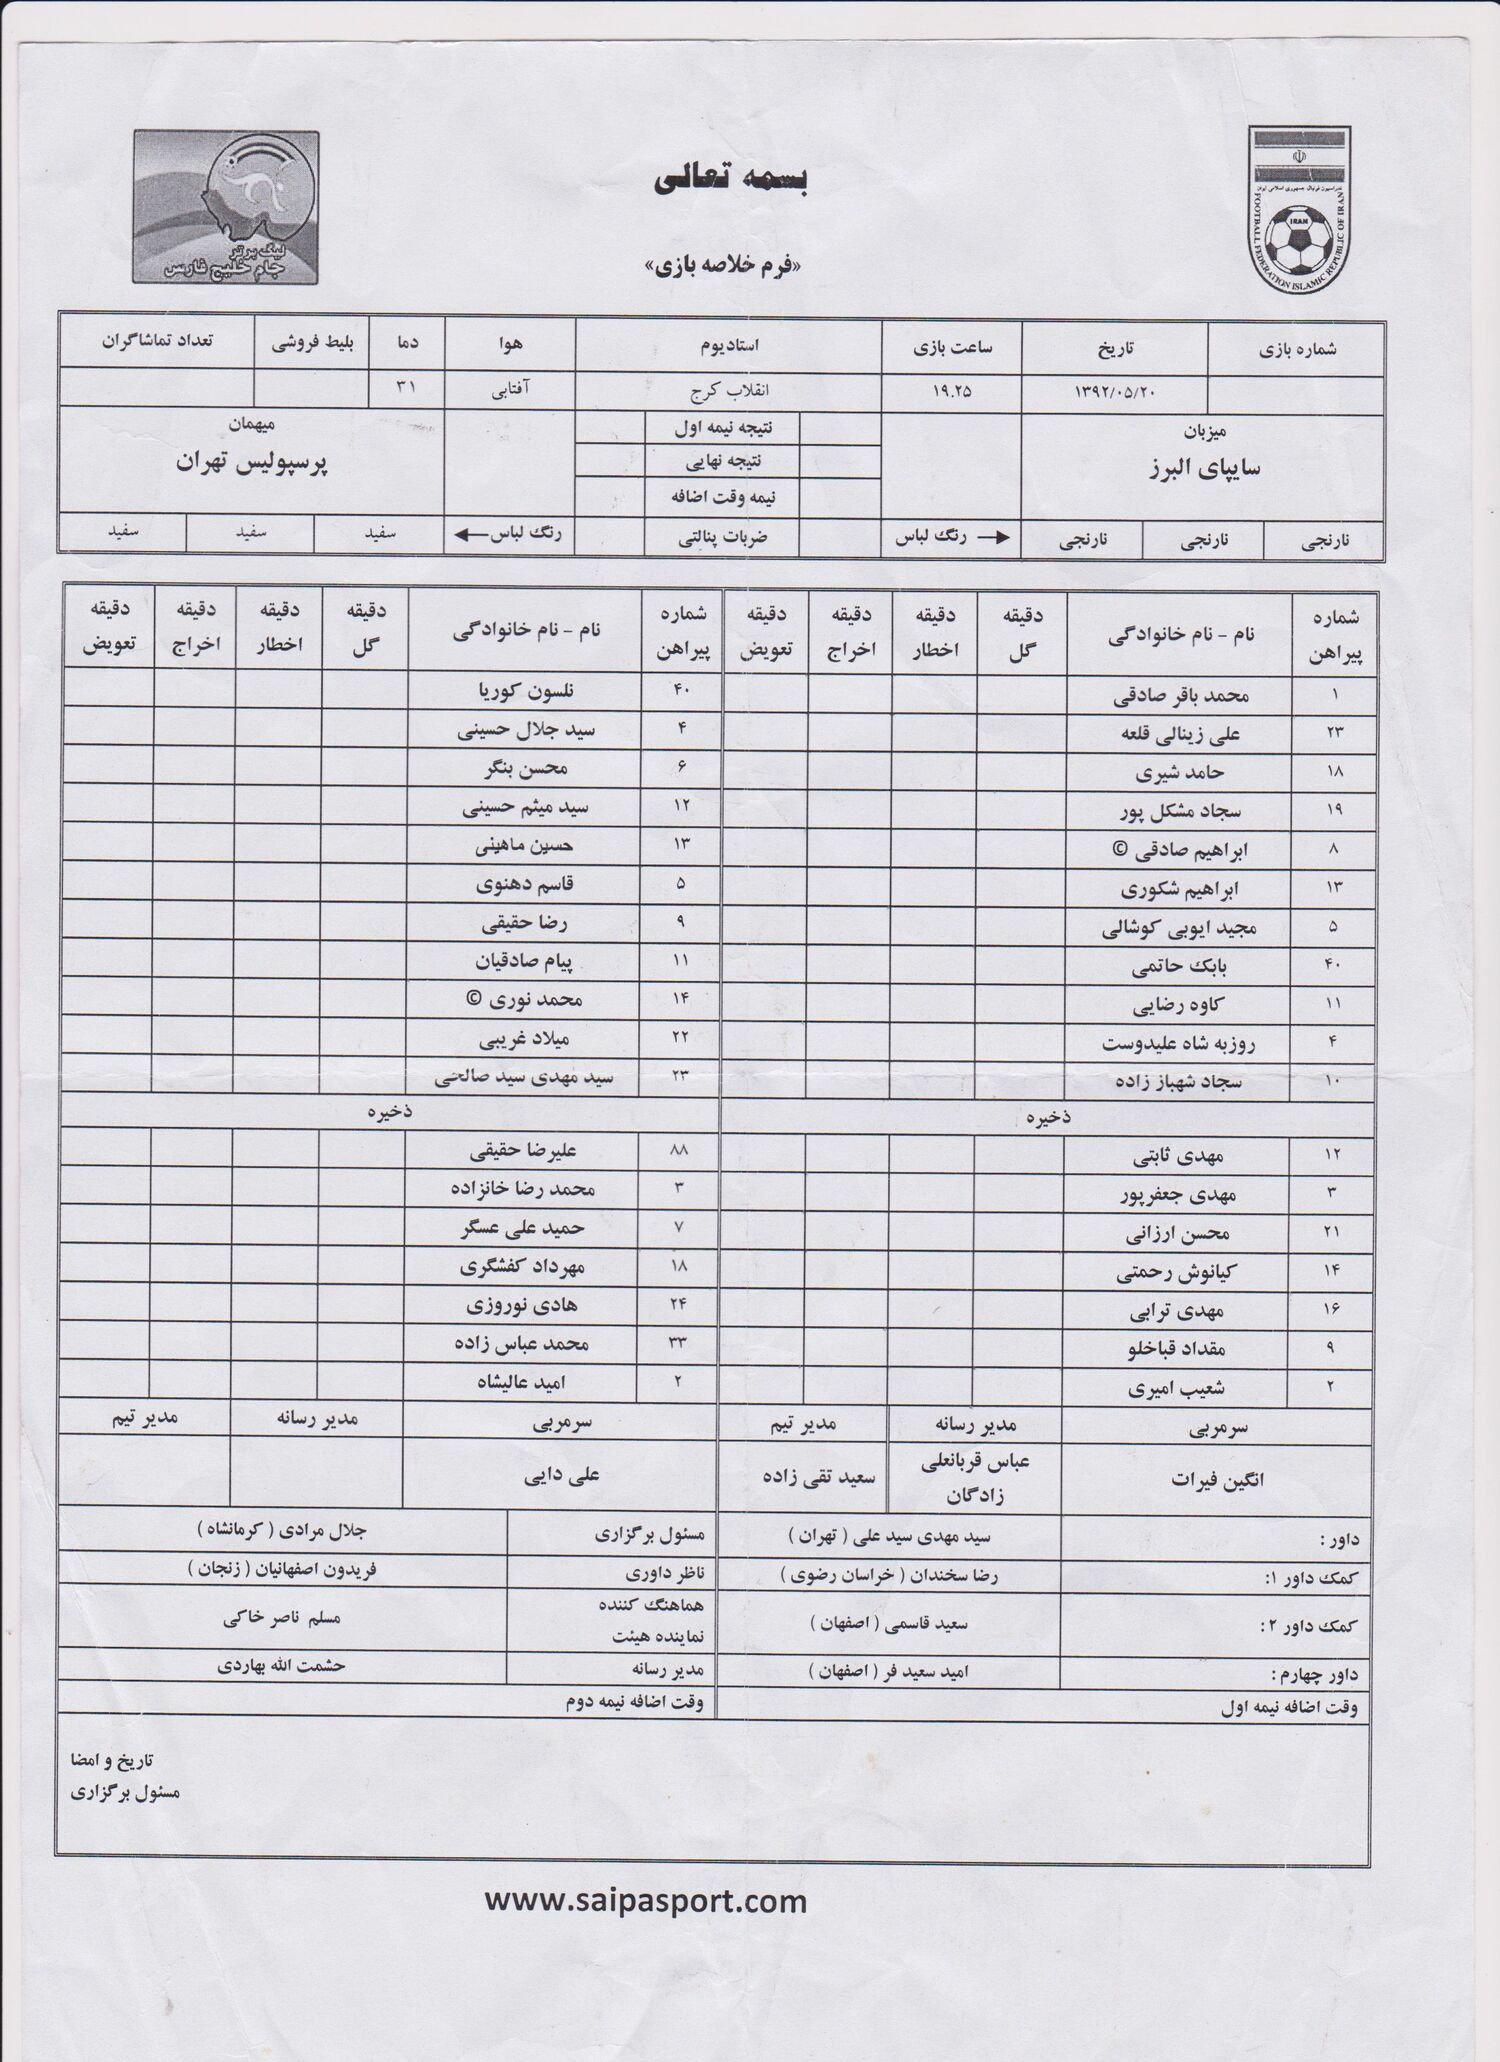 بسمه تعالی
«فرم خلاصه بازی»
لیگ برتر
جام خلیج فارس
فدراسیون فوتبال جمهوری اسلامی ایران
IRAN
FOOTBALL FEDERATION ISLAMIC REPUBLIC OF IRAN
شماره بازی تاریخ ساعت بازی استادیوم هوا دما بلیط فروشی تعداد تماشاگران
۱۳۹۲/۰۵/۲۰ ۱۹.۲۵ انقلاب کرج آفتابی ۳۱
میزبان نتیجه نیمه اول میهمان
سایپای البرز نتیجه نهایی پرسپولیس تهران
نیمه وقت اضافه
نارنجی نارنجی نارنجی رنگ لباس → ضربات پنالتی رنگ لباس ← سفید سفید سفید
شماره پیراهن نام - نام خانوادگی دقیقه گل دقیقه اخطار دقیقه اخراج دقیقه تعویض شماره پیراهن نام - نام خانوادگی دقیقه گل دقیقه اخطار دقیقه اخراج دقیقه تعویض
۱ محمد باقر صادقی ۴۰ نلسون کوریا
۲۳ علی زینالی قلعه ۴ سید جلال حسینی
۱۸ حامد شیری ۶ محسن بنگر
۱۹ سجاد مشکل پور ۱۲ سید میثم حسینی
۸ ابراهیم صادقی © ۱۳ حسین ماهینی
۱۳ ابراهیم شکوری ۵ قاسم دهنوی
۵ مجید ایوبی کوشالی ۹ رضا حقیقی
۴۰ بابک حاتمی ۱۱ پیام صادقیان
۱۱ کاوه رضایی ۱۴ محمد نوری ©
۴ روزبه شاه علیدوست ۲۲ میلاد غریبی
۱۰ سجاد شهباز زاده ۲۳ سید مهدی سید صالحی
ذخیره ذخیره
۱۲ مهدی ثابتی ۸۸ علیرضا حقیقی
۳ مهدی جعفرپور ۳ محمد رضا خانزاده
۲۱ محسن ارزانی ۷ حمید علی عسگر
۱۴ کیانوش رحمتی ۱۸ مهرداد کفشگری
۱۶ مهدی ترابی ۲۴ هادی نوروزی
۹ مقداد قباخلو ۳۳ محمد عباس زاده
۲ شعیب امیری ۲ امید عالیشاه
سرمربی مدیر رسانه مدیر تیم سرمربی مدیر رسانه مدیر تیم
انگین فیرات عباس قربانعلی زادگان سعید تقی زاده علی دایی
داور : سید مهدی سید علی ( تهران ) مسئول برگزاری جلال مرادی ( کرمانشاه )
کمک داور ۱: رضا سخندان ( خراسان رضوی ) ناظر داوری فریدون اصفهانیان ( زنجان )
کمک داور ۲ : سعید قاسمی ( اصفهان ) هماهنگ کننده نماینده هیئت مسلم ناصر خاکی
داور چهارم : امید سعید فر ( اصفهان ) مدیر رسانه حشمت الله بهاردی
وقت اضافه نیمه اول وقت اضافه نیمه دوم
تاریخ و امضا
مسئول برگزاری
www.saipasport.com